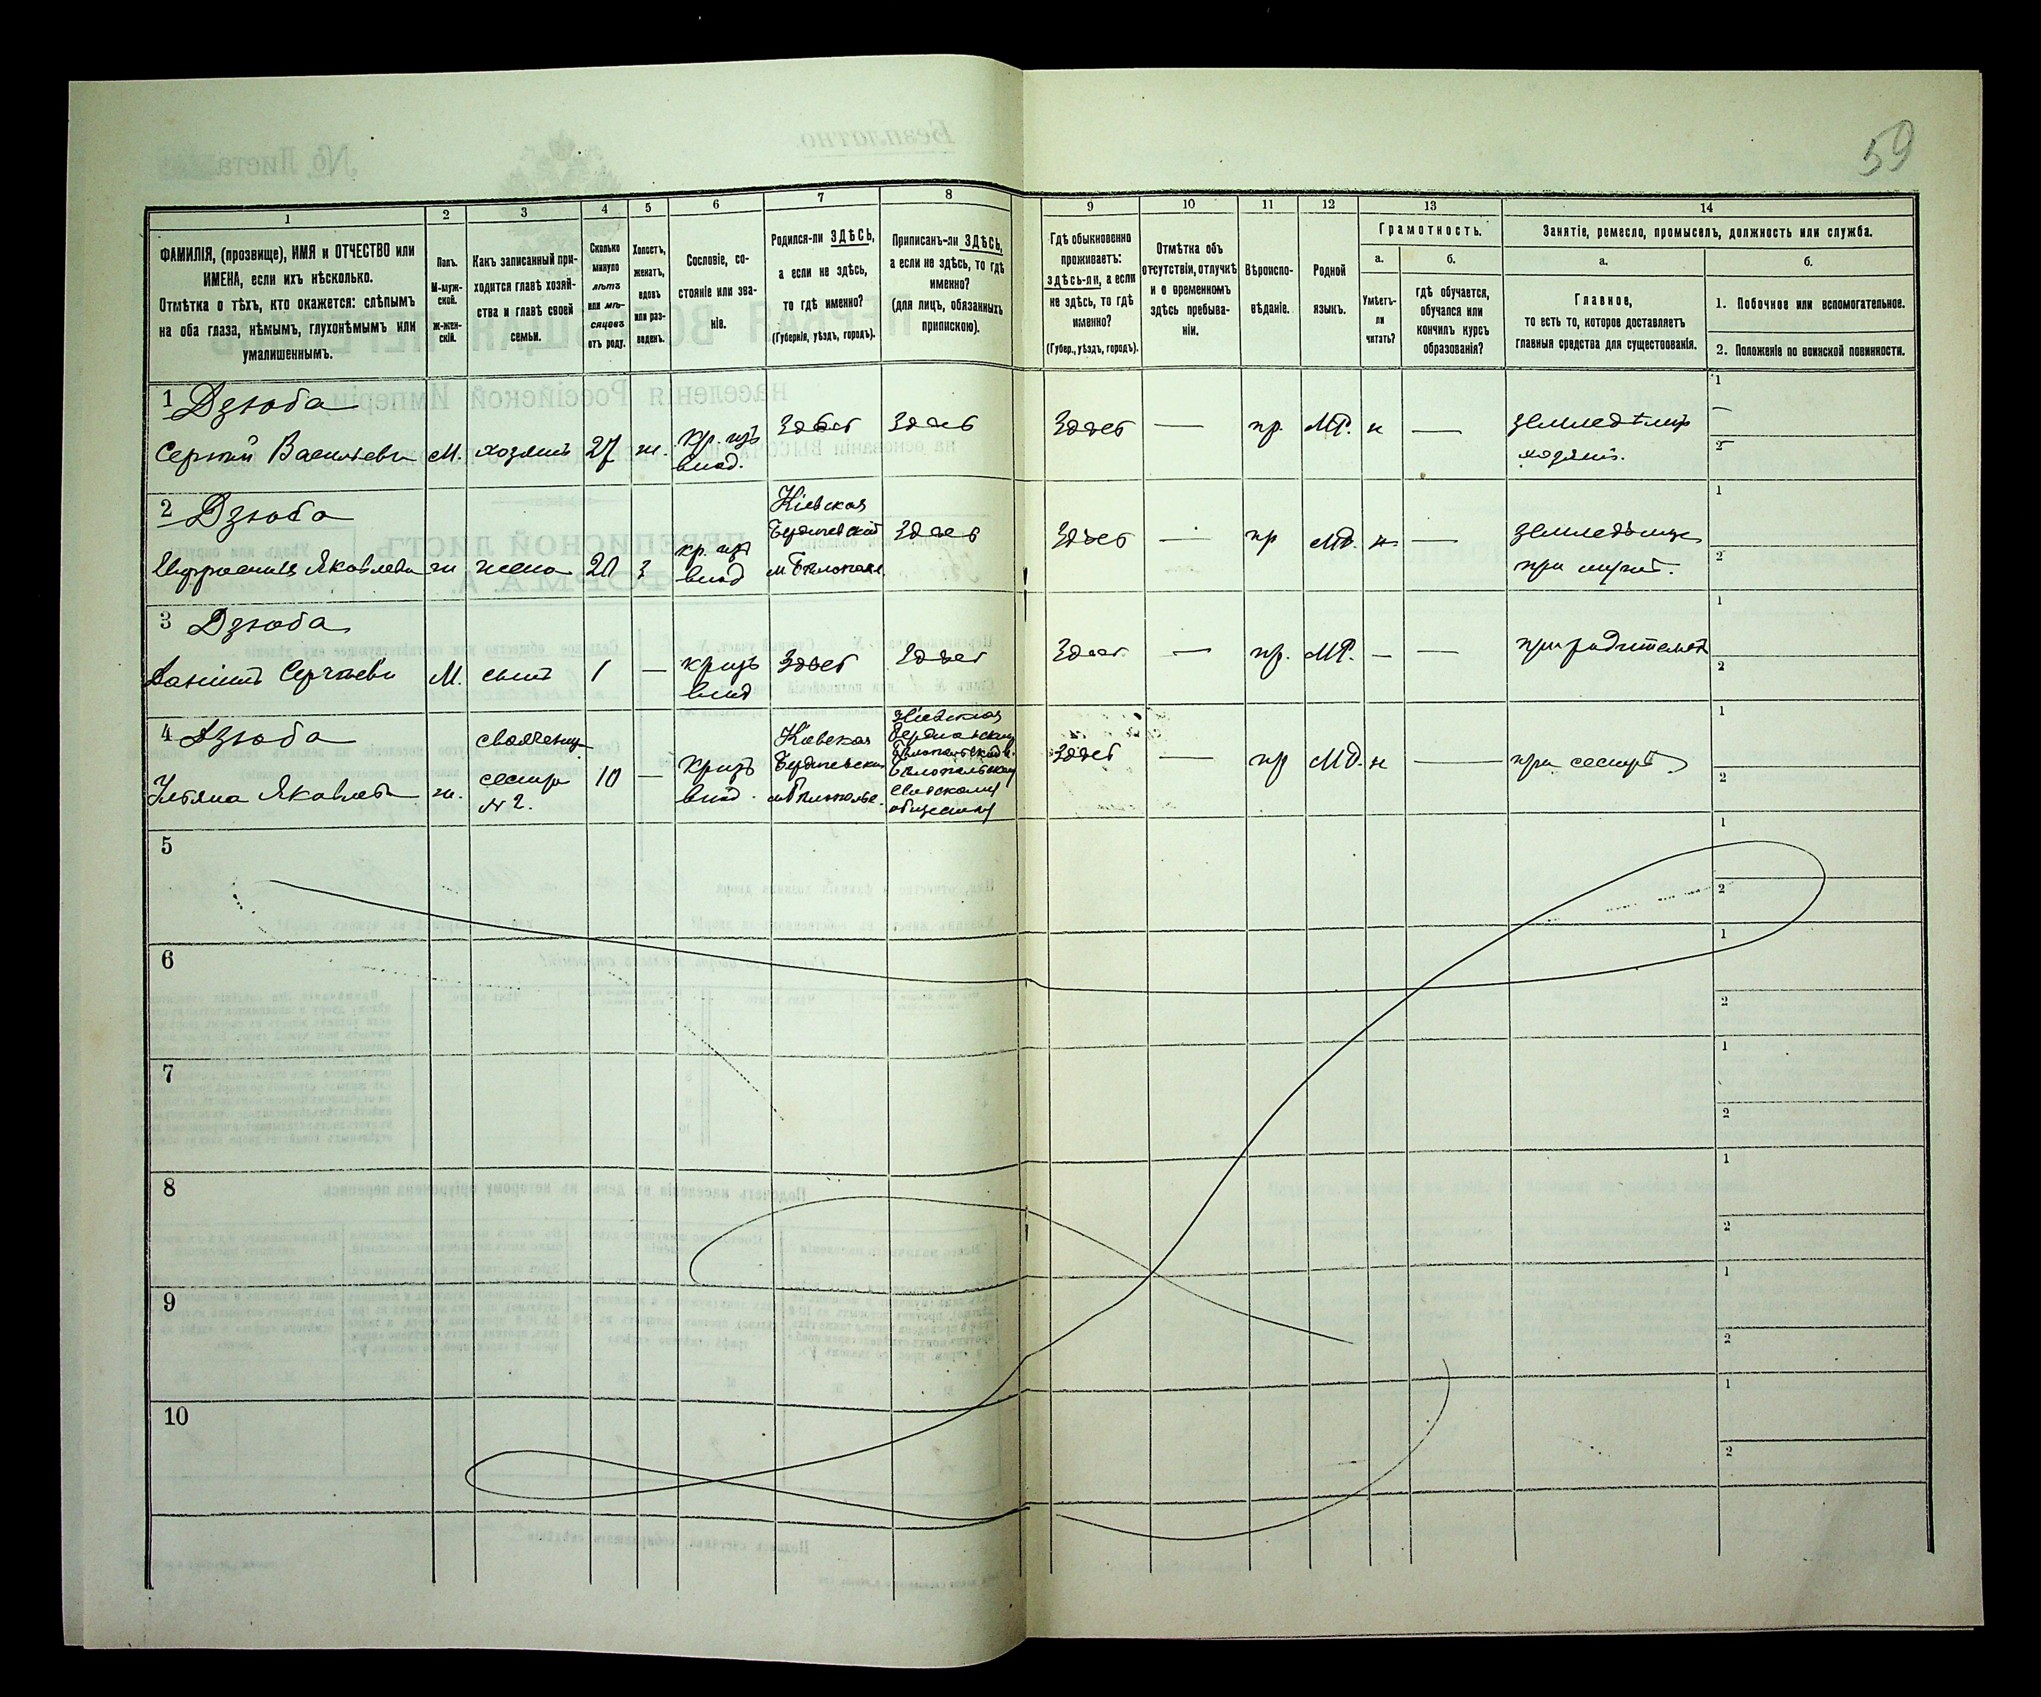 59
1
2
3
4
5
6
7
8
9
10
11
12
13
14
ФАМИЛІЯ, (прозвище), ИМЯ и ОТЧЕСТВО или
ИМЕНА, если ихъ нѣсколько.
Отмѣтка о тѣхъ, кто окажется: слѣпымъ
на оба глаза, нѣмымъ, глухонѣмымъ или
умалишеннымъ.
Полъ.
М-муж-
ской.
ж-жен-
скій.
Какъ записанный при-
ходится главѣ хозяй-
ства и главѣ своей
семьи.
Сколько
минуло
лѣтъ
или мѣ-
сяцевъ
отъ роду.
Холостъ,
женатъ,
вдовъ
или раз-
веденъ.
Сословіе, со-
стояніе или зва-
ніе.
Родился-ли ЗДѢСЬ,
а если не здѣсь,
то гдѣ именно?
(Губернія, уѣздъ, городъ).
Приписанъ-ли ЗДѢСЬ,
а если не здѣсь, то гдѣ
именно?
(для лицъ, обязанныхъ
припискою).
Гдѣ обыкновенно
проживаетъ:
здѣсь-ли, а если
не здѣсь, то гдѣ
именно?
(Губер., уѣздъ, городъ).
Отмѣтка объ
отсутствіи, отлучкѣ
и о временномъ
здѣсь пребыва-
ніи.
Вѣроиспо-
вѣданіе.
Родной
языкъ.
Грамотность.
а.
Умѣетъ-
ли
читать?
б.
гдѣ обучается,
обучался или
кончилъ курсъ
образованія?
Занятіе, ремесло, промыселъ, должность или служба.
а.
Главное,
то есть то, которое доставляетъ
главныя средства для существованія.
б.
1. Побочное или вспомогательное.
2. Положеніе по воинской повинности.
1 Дзюба
Сергѣй Васильевъ М. хозяинъ 27 ж. кр. изъ
влад.
Здѣсь Здѣсь Здѣсь — пр. МР. н — земледѣлiе
хозяинъ.
1 —
2
2 Дзюба
Евфросинія Яковлева ж жена 20 з кр. изъ
влад
Кіевская
Бердичевскій
м Бѣлополье
Здѣсь Здѣсь — пр МР. н —
при мужѣ.
1
2
3 Дзюба
Сергѣевъ М. сынъ 1 — кр изъ
влад
Здѣсь Здѣсь Здѣсь — пр. МР. — — при родителяхъ
1
2
4 Дзюба
Ульяна Яковлева ж. свояченица
сестра
№ 2.
10 — кр изъ
влад.
Кіевская
Бердичевскій
м Бѣлополье.
Кіевская
Бердичевскій
Бѣлопольской в.
Бѣлопольскому
сельскому
обществу
Здѣсь — пр МР. н — при сестрѣ
1
2
5
1
2
6
1
2
7
1
2
8
1
2
9
1
2
10
1
2